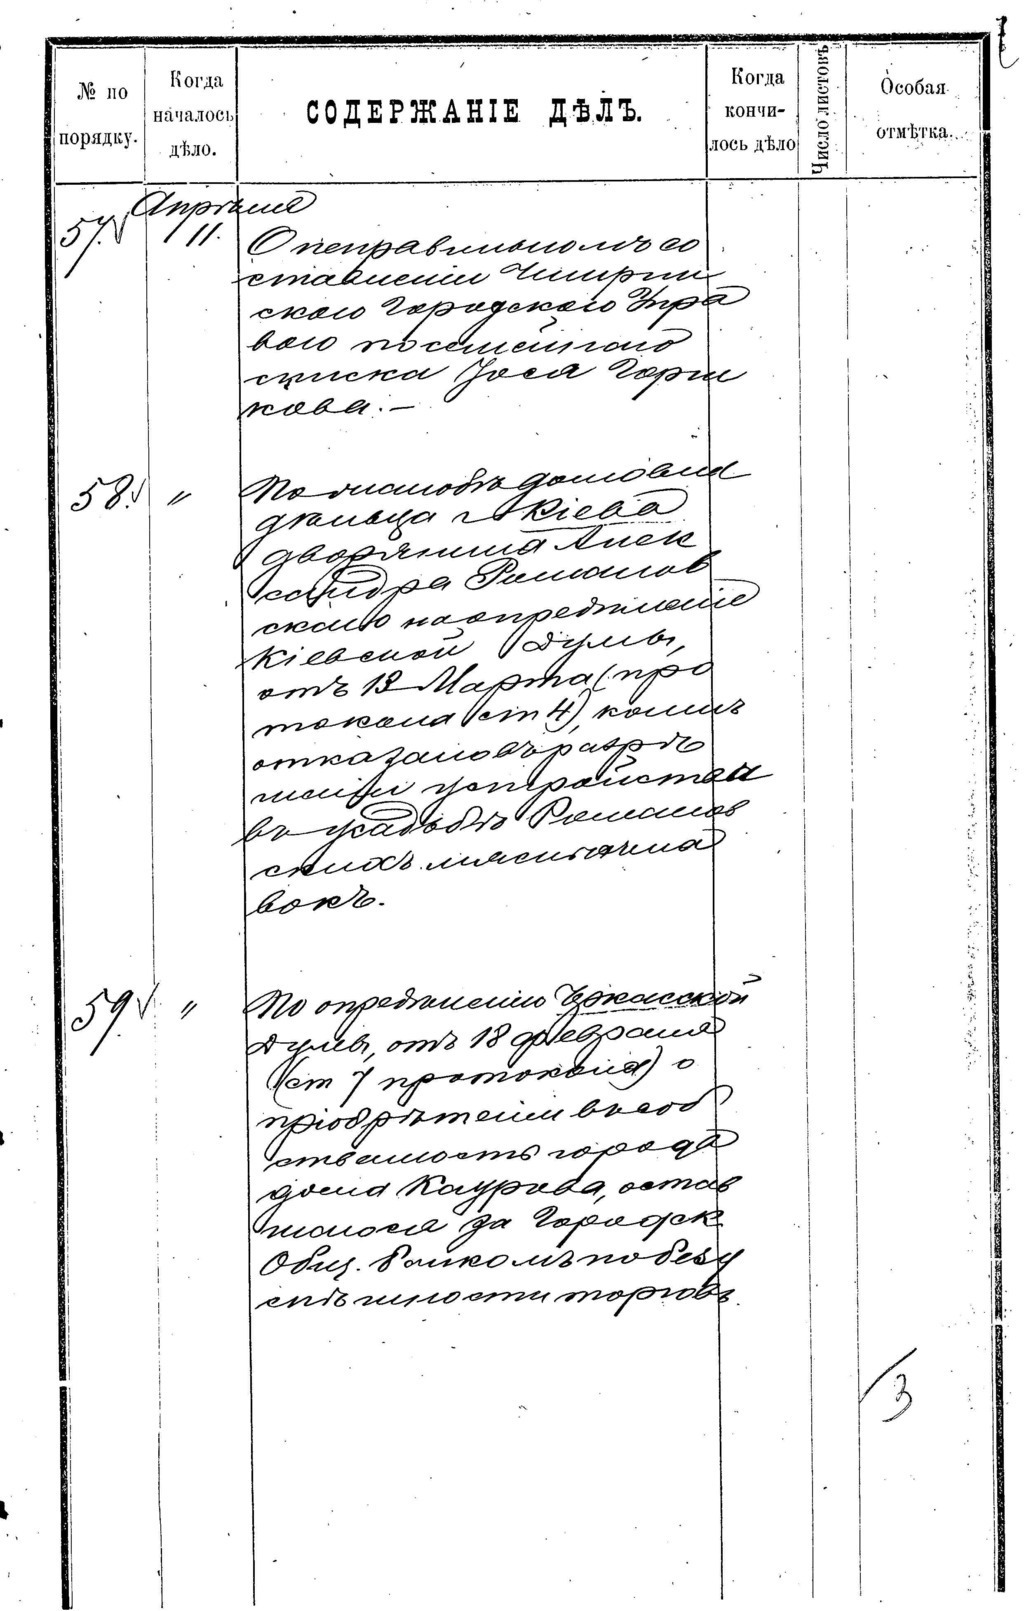 № по порядку.
Когда началось дѣло.
СОДЕРЖАНІЕ ДѢЛЪ.
Когда кончилось дѣло
Число листовъ
Особая отмѣтка.
Апрѣля
57. 11. О неправильномъ со
ставленіи Чигрин
скою Городскою Упра
вою посемейнаго
списка Іося Горш
кова. —
58. " По жалобѣ домовла
дѣльца г. Кіева
дворянина Алек
сандра Романов
скаго на опредѣленіе
Кіевской Думы,
отъ 13 Марта (про
токола ст 4), коимъ
отказано въ разрѣ
шеніи устройства
въ усадьбѣ Романов
скихъ мясныхъ ла
вокъ.
59. " По опредѣленію Черкасской
Думы, отъ 18 февраля
(ст 7 протокола) о
пріобрѣтеніи въ соб
ственность города
дома Каурова, остав
шагося за Городск
Общ. банкомъ по безу
спѣшности торговъ.
3